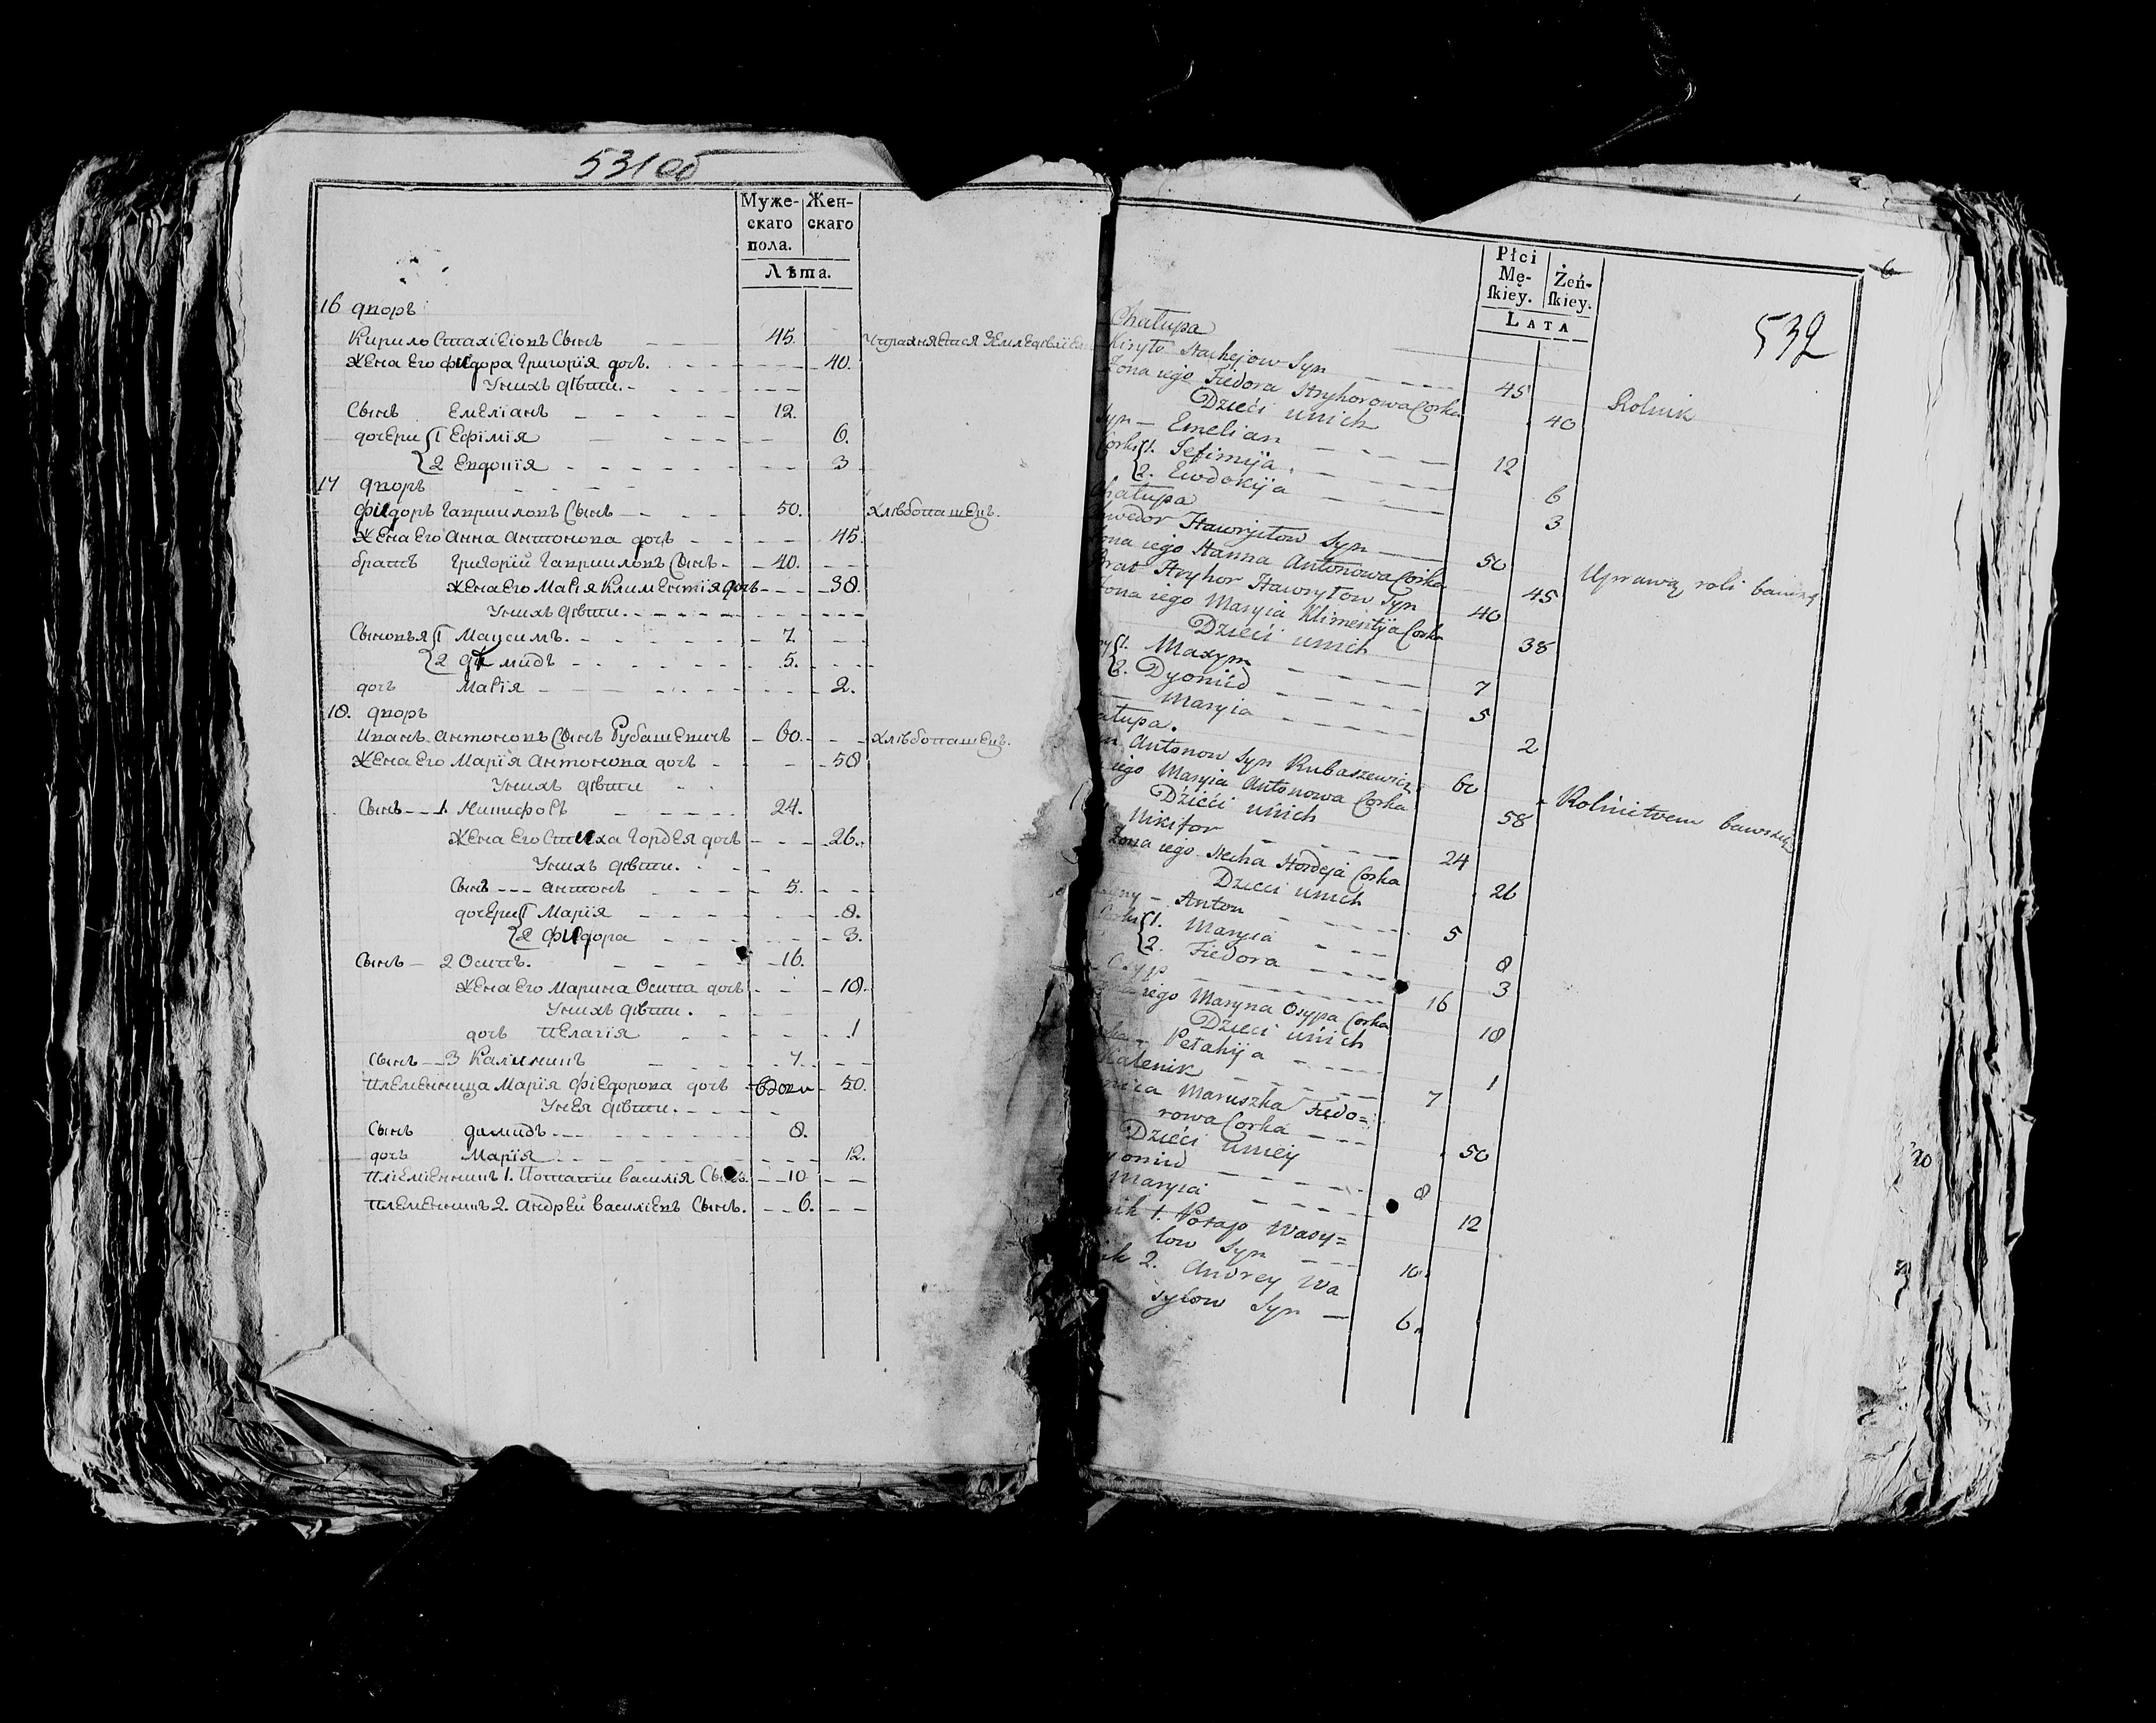 531 об
Муже-
скаго
пола.
Жен-
скаго
Лѣта.
16 дворъ
Кирило Стахіевъ Сынъ 45.
Жена Его Фіодора Григорія дочь. 40.
Унихъ дѣти.
Сынъ Емеліанъ 12.
дочери 1 Ефімія 6.
2 Евдокія 3
17 дворъ
Фіодоръ Гавриловъ Сынъ 50. хлѣбопашецъ.
Жена Его Анна Антонова дочь 45
братъ Григорій Гавриловъ Сынъ 40.
Жена Его Марія Климентія дочь 38.
Унихъ дѣти.
Сыновья 1 Максимъ. 7
2 мидъ 5.
дочь Марія 2.
18. дворъ
Иванъ Антоновъ Сынъ Рубашевичъ 60. хлѣбопашецъ.
Жена Его Марія Антонова дочь 58
Унихъ дѣти
Сынъ 1. Никифоръ 24.
Жена Его Стиха Гордея дочь 26.
Унихъ дѣти.
Сынъ Антонъ 5.
дочери 1 Марія 8.
2 Фіодора 3.
Сынъ 2 Осипъ. 16.
Жена Его Марина Осипа дочь 18.
Унихъ дѣти.
дочь Пелагія 1
Сынъ 3 Калиникъ 7.
Племенница Марія Фіедорова дочь вдова 50.
Унея дѣти.
Сынъ димидъ 8.
дочь Марія 12.
Племенникъ 1. Потапіи Василія Сынъ. 10
Племенникъ 2. Андрей Василіевъ Сынъ. 6.
6
532
Płci
Mę-
ſkiey.
Żeń-
ſkiey.
LATA
Chałupa
Kiryło Stachejow Syn 45 Rolnik
Żona iego Fiedora Hryhorowa Corka 40
Dzieći unich
Syn Emelian 12
Corki 1. Jefimija 6
2. Ewdokija 3
Chałupa
Chwedor Hawryłow Syn 50 Uprawą roli bawi
Żona iego Hanna Antonowa Corka 45
Brat Hryhor Hawryłow Syn 40
Żona iego Maryia Klimentija Corka 38
Dzieći unich
1. Maxym 7
2. Dyonid 5
Maryia 2
atupa.
Antonow Syn Rubaszewicz 60 Rolnictwem
iego Maryia Antonowa Corka 58
Dzieći unich
Nikifor 24
Żona iego Stecha Hordeja Corka 26
Dzieci unich
Anton 5
Corki 1. Maryia 8
2. Fiedora 3
Osyp 16
iego Maryna Osypa Corka 18
Dzieci unich
Pełahija 1
Kalenik 7
Maruszka Fiedo=
rowa Corka 50
Dzieći uniey
8
Maryia 12
1. Potap Wasy=
low Syn 10.
2. Andrey Wa
sylow Syn 6.